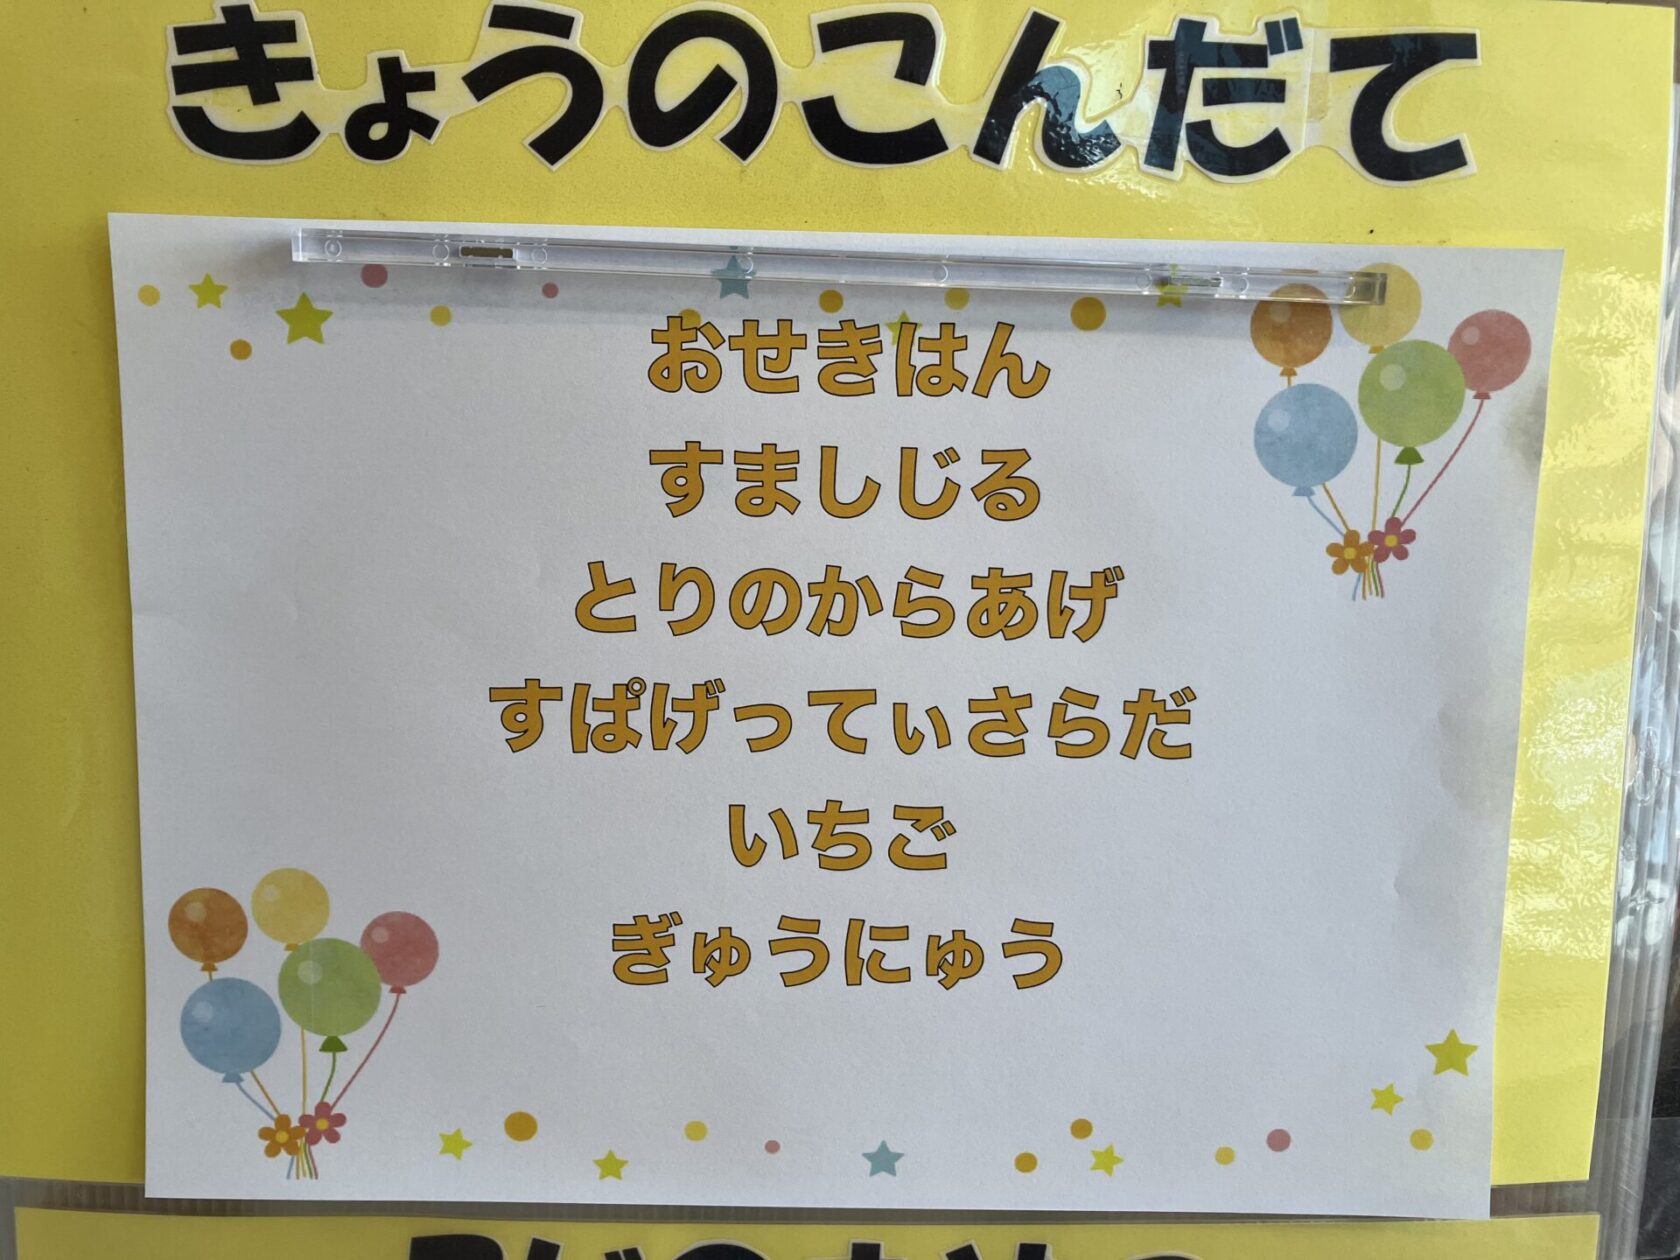 きょうのこんだて
おせきはん
すましじる
とりのからあげ
すぱげってぃさらだ
いちご
ぎゅうにゅう